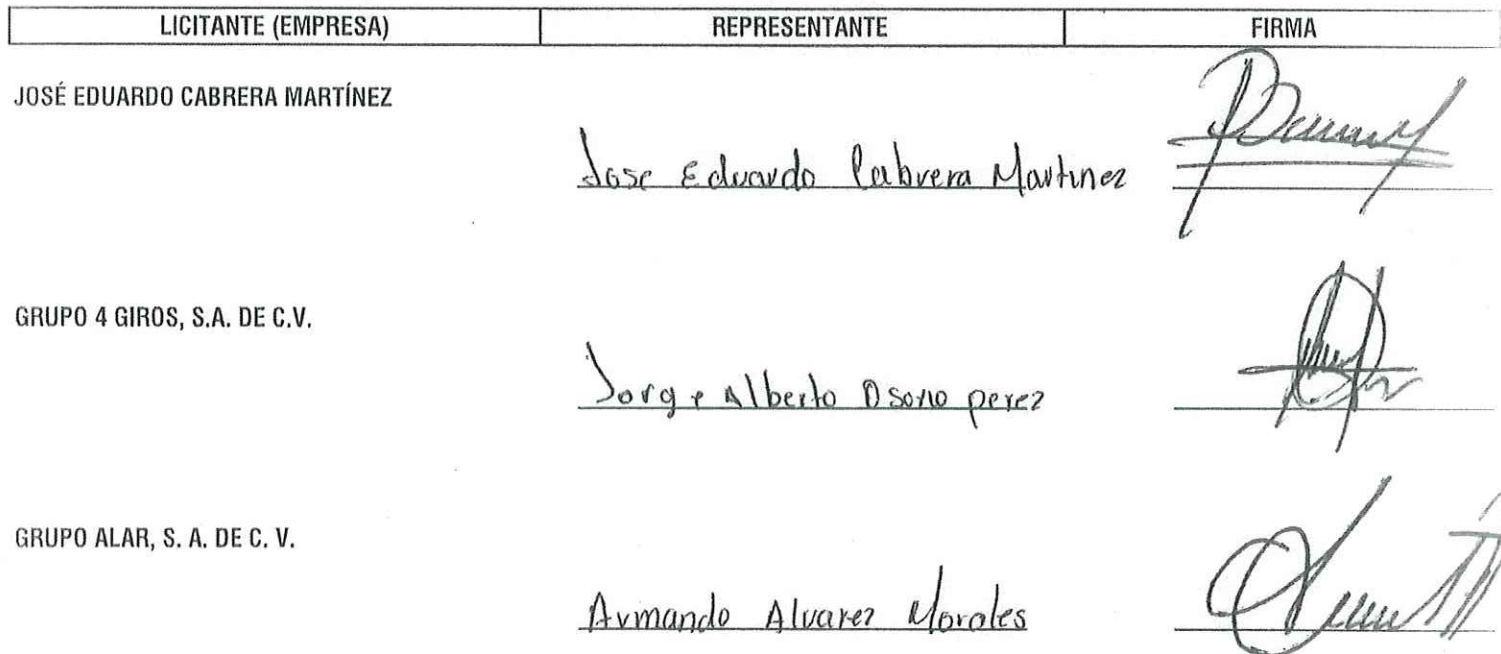 LICITANTE (EMPRESA) REPRESENTANTE FIRMA
JOSÉ EDUARDO CABRERA MARTÍNEZ
Jose Eduardo Cabrera Martinez
GRUPO 4 GIROS, S.A. DE C.V.
Jorge Alberto Osorio perez
GRUPO ALAR, S. A. DE C. V.
Armando Alvarez Morales